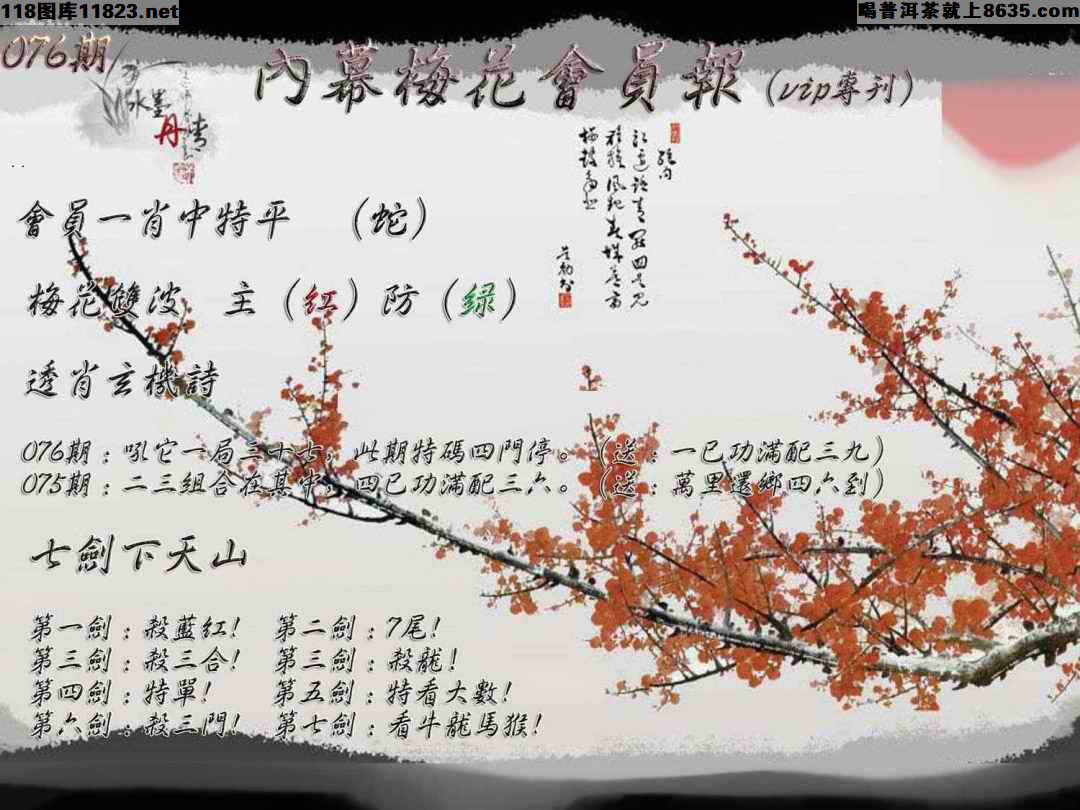 118图库11823.net
喝普洱茶就上8635.com
076期
內幕梅花會員報(vip專刊)
水墨
丹青
會員一肖中特平 (蛇)
梅花雙波 主(红)防(绿)
透肖玄機詩
076期:吼它一局三十七,此期特碼四門停。(送:一已功滿配三九)
075期:二三組合在其中,四已功滿配三六。(送:萬里還鄉四六到)
七劍下天山
第一劍:殺藍紅! 第二劍:7尾!
第三劍:殺三合! 第三劍:殺龍!
第四劍:特單! 第五劍:特看大數!
第六劍:殺三門! 第七劍:看牛龍馬猴!